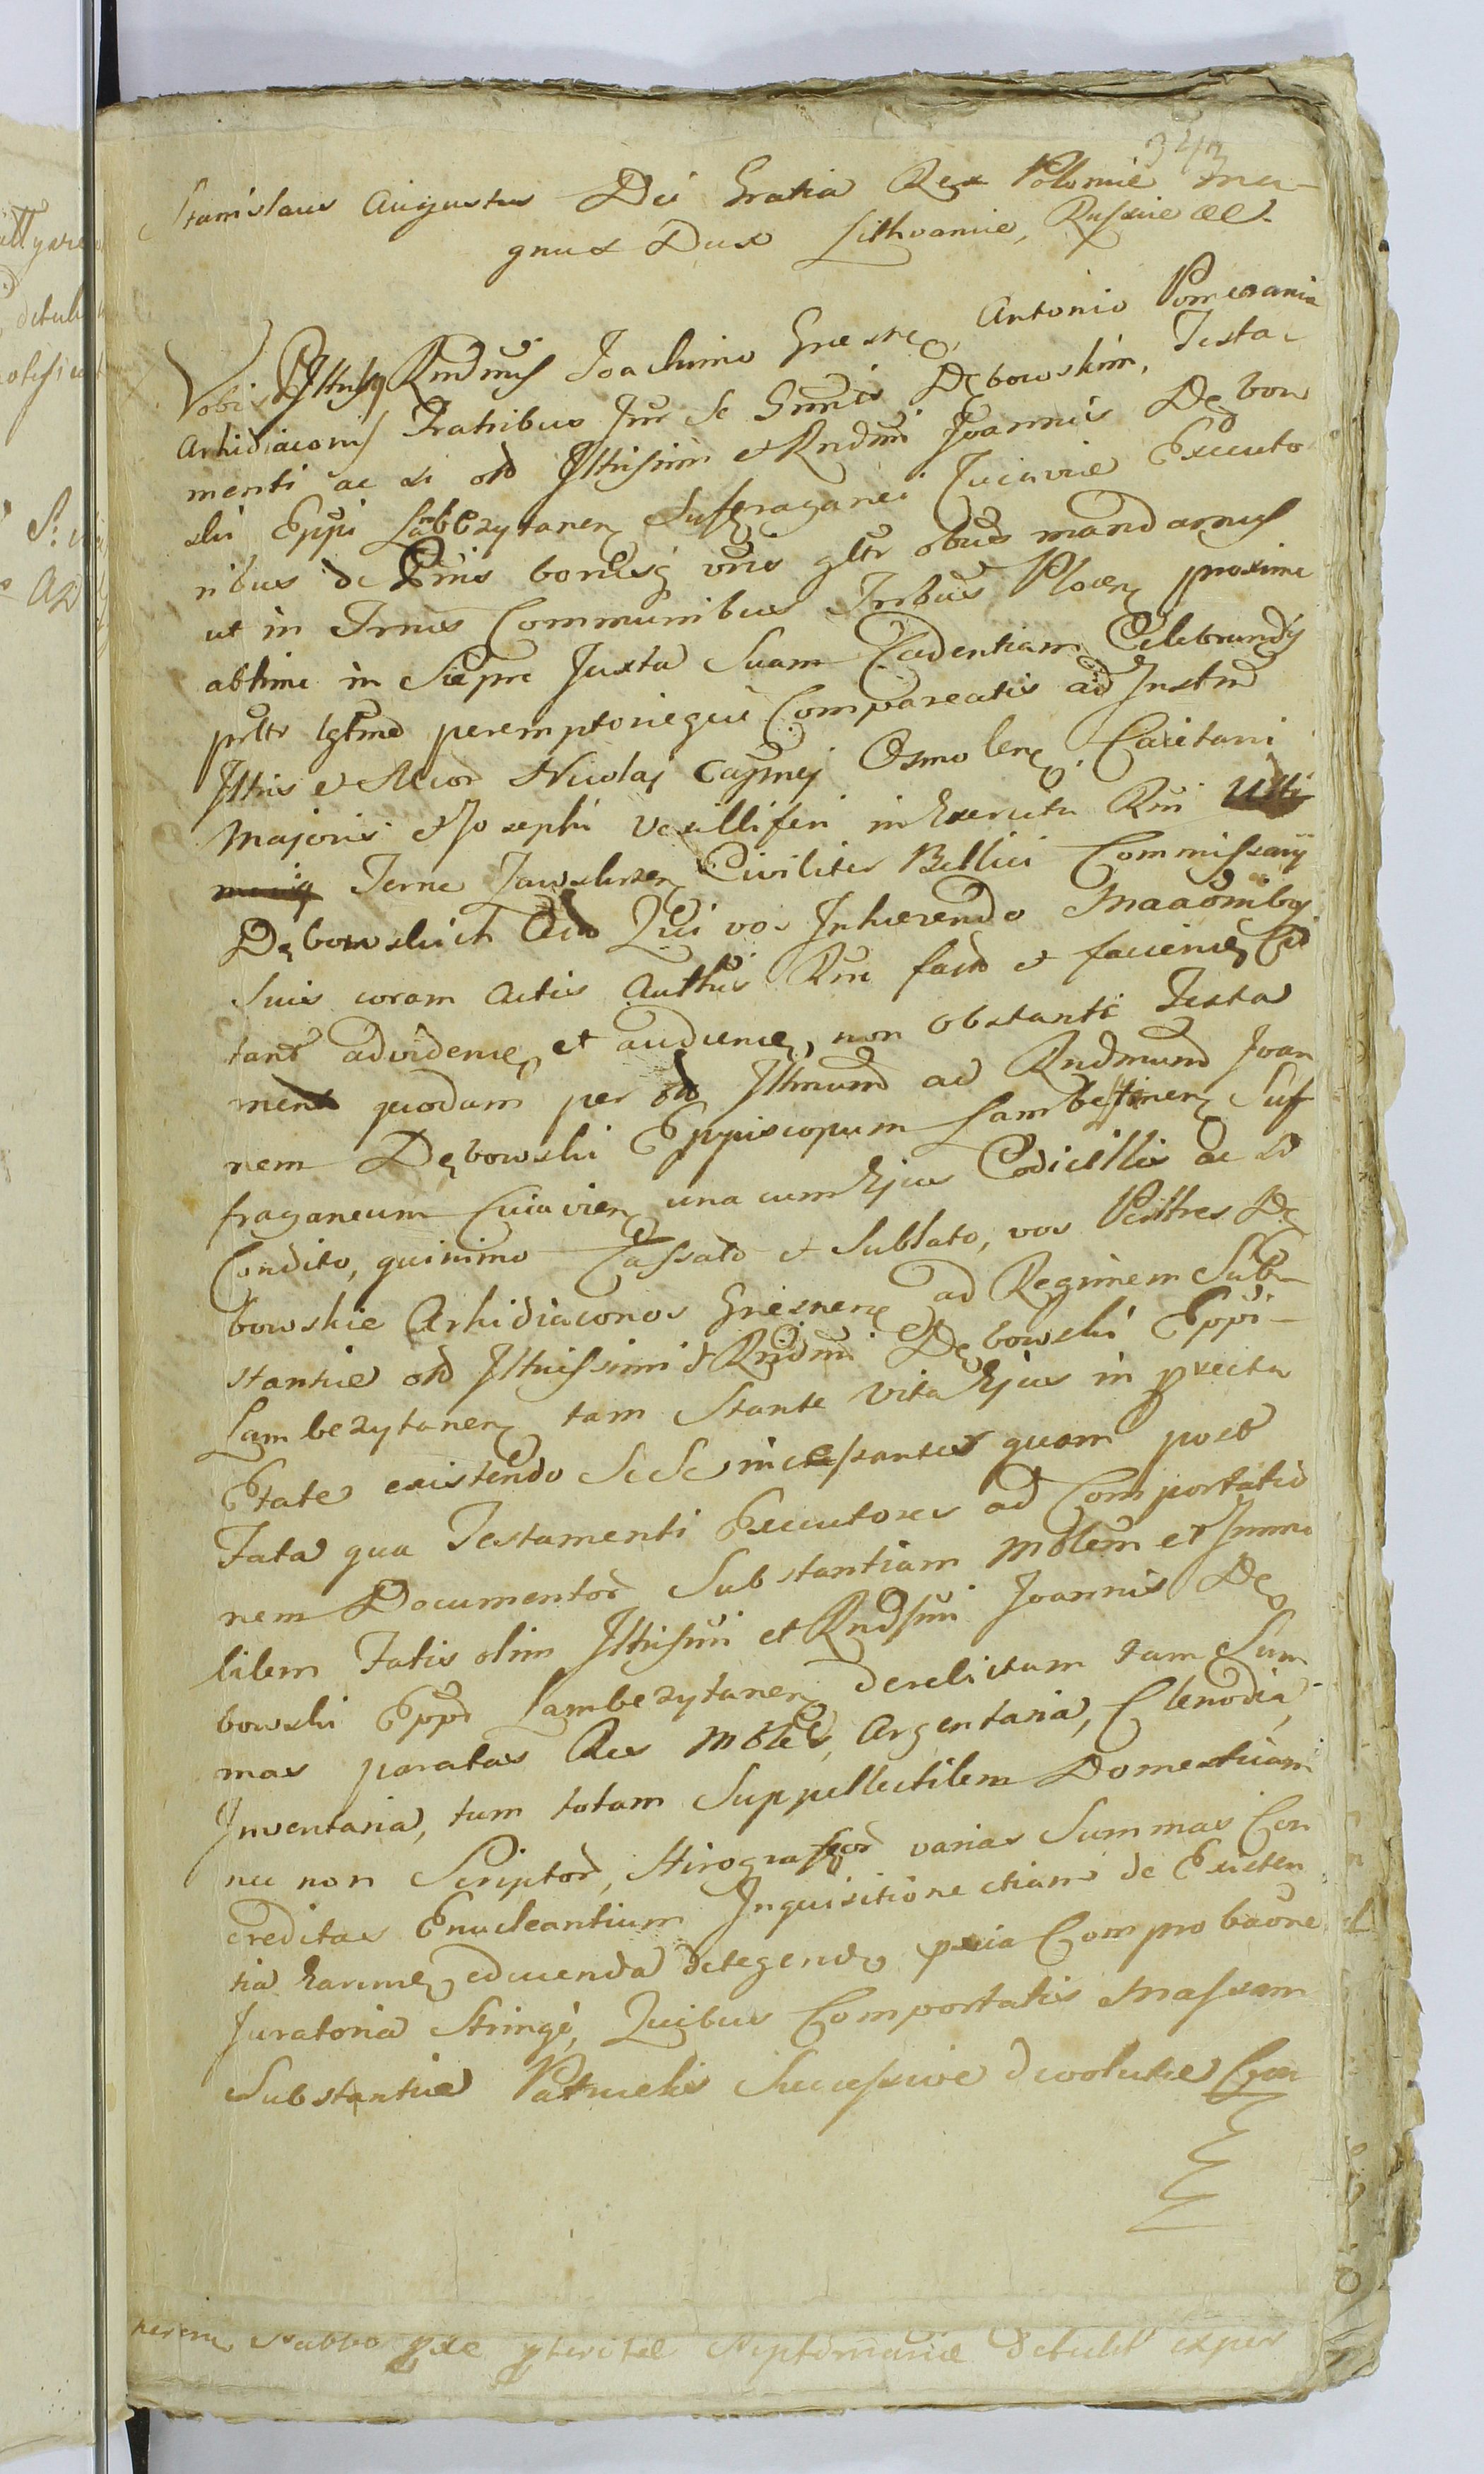 343
Stanislaus Augustus Dei Gratia Rex Polonie ma-
gnus Dux Lithvanie, Russie &c.
Vobis Rndmis Joachimo Gnesne Antonio Pomerania
Arhidiaconis Fratribus Inr Se Gnnis Dębowskim, Testa-
menti ac si old Illrissimi et Rndmi Joannis Dębow
ski Eppi Lambezytanen Suffraganei Cuiavie Executo
ribus de Pnis bonisq vris gltr obus mandamus
ut in Trnis Communibus Trrbus Plocen proxime
abhinc in Sierpre Juxta Suam Cadentiam Celebrandis
prltr lgtme peremptorieque Compareatis ad Instm
Illris et Mcor Nicolaj Capnej Osmolen, Caietani
Majoris et Josephi Vexilliferi in Exercitu Rni
Terre Zawskrzen Civiliter Bellici Commissarij
Dębowskich Acto Qui vos Inherendo Maaonibus
Suis coram Actis Authcis Rni factis et faciendis Ci
tant ad videndum et audiendum, non obstante Testa
mento quodam per old Illmum ac Rndmum Joan
nem Dębowski Eppiscopum Lambestinen Suf
fraganeum Cuiavien una cum Ejus Codicillis ac si
Condito, quinimo Cassato et Sublato, vos Penttres Dę
bowskie Arhidiaconos Gnesnen ad Regimen Sub-
stantie old Illrissimi et Rndmi Dębowski Eppi-
Lambezytanen tam Stante Vita Ejus in provecta
Etate existendo Sese incessantes quam post
Fata qua Testamenti Executores ad Comportatio
nem Documentor Substantiam Mblem et Immo
bilem Fatis olim Illrissimi et Rndssmi Joannis Dę
bowski Eppi Lambezytanen derelictam tam Sum-
mas paratas Res Mbles, Argentaria, Clenodia,
Inventaria, tum totam Suppellectilem Domesticam
nec non Scriptor, Hirografor varias Summas Con
creditas Enucleantium Inquisitione etiam de Existen
tia earume educenda detegendo pvia Comprobaone
Juratoria Stringi, Quibus Comportatis Massam
Substantie Patruelis Successive devolute Con
Sabbo pxe pterite Septimanie detulit exper